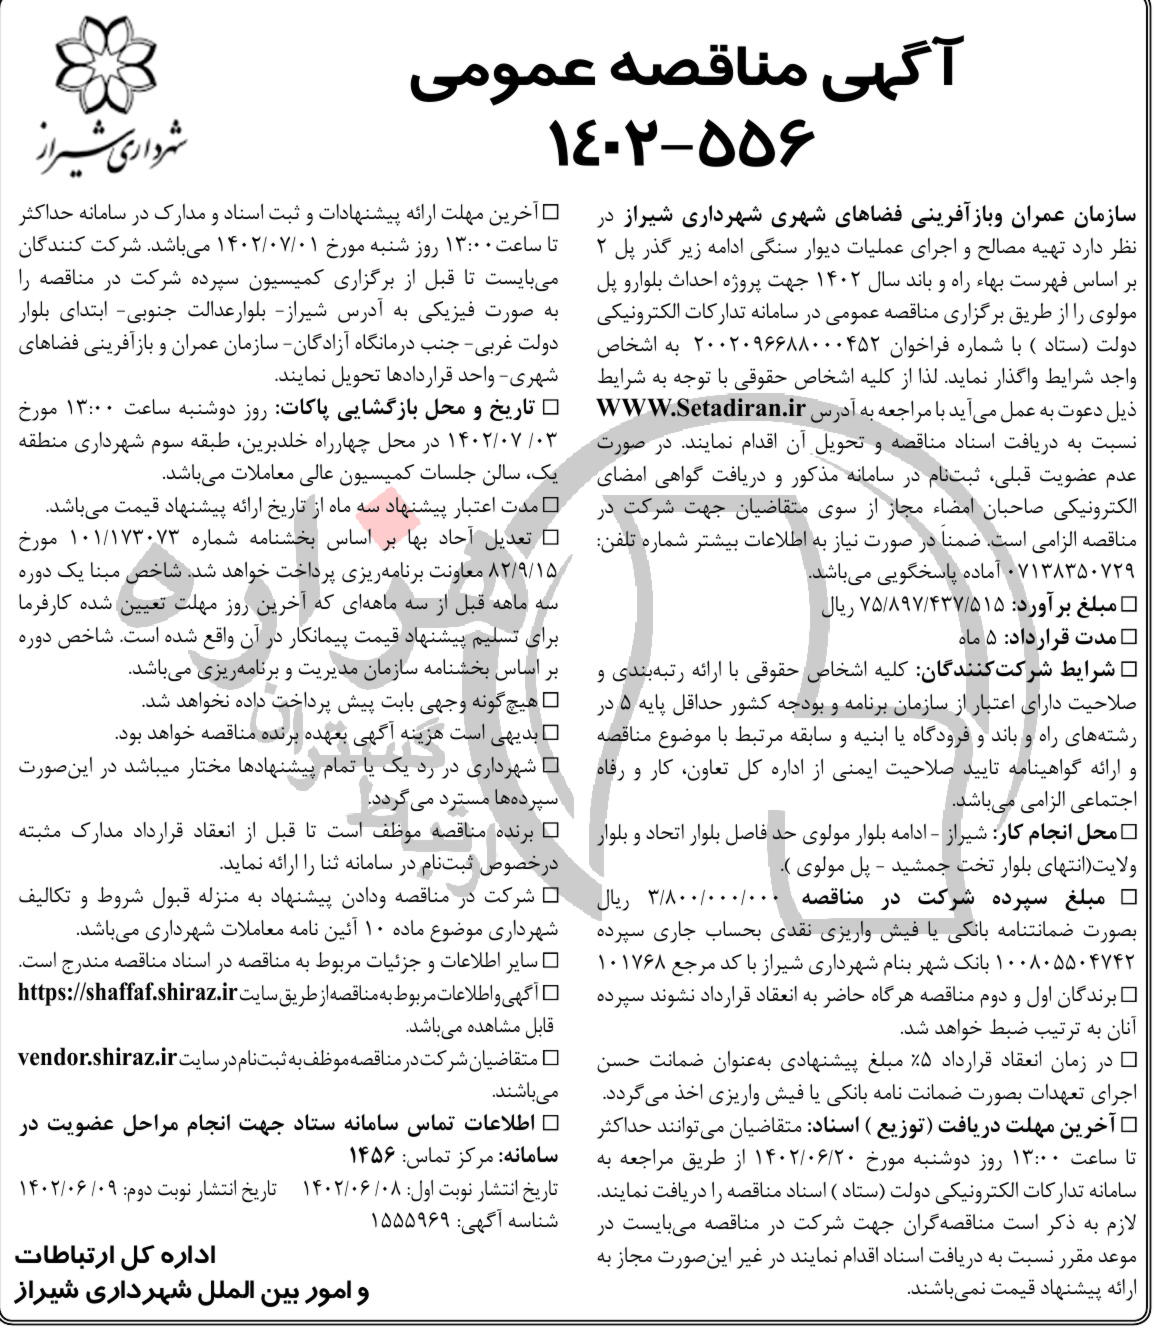 شهرداری شیراز
آگهی مناقصه عمومی
۱۴۰۲-۵۵۶
سازمان عمران وبازآفرینی فضاهای شهری شهرداری شیراز در
نظر دارد تهیه مصالح و اجرای عملیات دیوار سنگی ادامه زیر گذر پل ۲
بر اساس فهرست بهاء راه و باند سال ۱۴۰۲ جهت پروژه احداث بلوارو پل
مولوی را از طریق برگزاری مناقصه عمومی در سامانه تدارکات الکترونیکی
دولت (ستاد ) با شماره فراخوان ۲۰۰۲۰۹۶۶۸۸۰۰۰۴۵۲ به اشخاص
واجد شرایط واگذار نماید. لذا از کلیه اشخاص حقوقی با توجه به شرایط
ذیل دعوت به عمل می‌آید با مراجعه به آدرس WWW.Setadiran.ir
نسبت به دریافت اسناد مناقصه و تحویل آن اقدام نمایند. در صورت
عدم عضویت قبلی، ثبت‌نام در سامانه مذکور و دریافت گواهی امضای
الکترونیکی صاحبان امضاء مجاز از سوی متقاضیان جهت شرکت در
مناقصه الزامی است. ضمناً در صورت نیاز به اطلاعات بیشتر شماره تلفن:
۰۷۱۳۸۳۵۰۷۲۹ آماده پاسخگویی می‌باشد.
□ مبلغ برآورد: ۷۵/۸۹۷/۴۳۷/۵۱۵ ریال
□ مدت قرارداد: ۵ ماه
□ شرایط شرکت‌کنندگان: کلیه اشخاص حقوقی با ارائه رتبه‌بندی و
صلاحیت دارای اعتبار از سازمان برنامه و بودجه کشور حداقل پایه ۵ در
رشته‌های راه و باند و فرودگاه یا ابنیه و سابقه مرتبط با موضوع مناقصه
و ارائه گواهینامه تایید صلاحیت ایمنی از اداره کل تعاون، کار و رفاه
اجتماعی الزامی می‌باشد.
□ محل انجام کار: شیراز - ادامه بلوار مولوی حد فاصل بلوار اتحاد و بلوار
ولایت(انتهای بلوار تخت جمشید - پل مولوی ).
□ مبلغ سپرده شرکت در مناقصه ۳/۸۰۰/۰۰۰/۰۰۰ ریال
بصورت ضمانتنامه بانکی یا فیش واریزی نقدی بحساب جاری سپرده
۱۰۰۸۰۵۵۰۴۷۴۲ بانک شهر بنام شهرداری شیراز با کد مرجع ۱۰۱۷۶۸
□ برندگان اول و دوم مناقصه هرگاه حاضر به انعقاد قرارداد نشوند سپرده
آنان به ترتیب ضبط خواهد شد.
□ در زمان انعقاد قرارداد ۵٪ مبلغ پیشنهادی به‌عنوان ضمانت حسن
اجرای تعهدات بصورت ضمانت نامه بانکی یا فیش واریزی اخذ می‌گردد.
□ آخرین مهلت دریافت (توزیع ) اسناد: متقاضیان می‌توانند حداکثر
تا ساعت ۱۳:۰۰ روز دوشنبه مورخ ۱۴۰۲/۰۶/۲۰ از طریق مراجعه به
سامانه تدارکات الکترونیکی دولت (ستاد ) اسناد مناقصه را دریافت نمایند.
لازم به ذکر است مناقصه‌گران جهت شرکت در مناقصه می‌بایست در
موعد مقرر نسبت به دریافت اسناد اقدام نمایند در غیر این‌صورت مجاز به
ارائه پیشنهاد قیمت نمی‌باشند.
□ آخرین مهلت ارائه پیشنهادات و ثبت اسناد و مدارک در سامانه حداکثر
تا ساعت ۱۳:۰۰ روز شنبه مورخ ۱۴۰۲/۰۷/۰۱ می‌باشد. شرکت کنندگان
می‌بایست تا قبل از برگزاری کمیسیون سپرده شرکت در مناقصه را
به صورت فیزیکی به آدرس شیراز- بلوارعدالت جنوبی- ابتدای بلوار
دولت غربی- جنب درمانگاه آزادگان- سازمان عمران و بازآفرینی فضاهای
شهری- واحد قراردادها تحویل نمایند.
□ تاریخ و محل بازگشایی پاکات: روز دوشنبه ساعت ۱۳:۰۰ مورخ
۱۴۰۲/۰۷ /۰۳ در محل چهارراه خلدبرین، طبقه سوم شهرداری منطقه
یک، سالن جلسات کمیسیون عالی معاملات می‌باشد.
□ مدت اعتبار پیشنهاد سه ماه از تاریخ ارائه پیشنهاد قیمت می‌باشد.
□ تعدیل آحاد بها بر اساس بخشنامه شماره ۱۰۱/۱۷۳۰۷۳ مورخ
۸۲/۹/۱۵ معاونت برنامه‌ریزی پرداخت خواهد شد. شاخص مبنا یک دوره
سه ماهه قبل از سه ماهه‌ای که آخرین روز مهلت تعیین شده کارفرما
برای تسلیم پیشنهاد قیمت پیمانکار در آن واقع شده است. شاخص دوره
بر اساس بخشنامه سازمان مدیریت و برنامه‌ریزی می‌باشد.
□ هیچ‌گونه وجهی بابت پیش پرداخت داده نخواهد شد.
□ بدیهی است هزینه آگهی بعهده برنده مناقصه خواهد بود.
□ شهرداری در رد یک یا تمام پیشنهادها مختار میباشد در این‌صورت
سپرده‌ها مسترد می‌گردد.
□ برنده مناقصه موظف است تا قبل از انعقاد قرارداد مدارک مثبته
درخصوص ثبت‌نام در سامانه ثنا را ارائه نماید.
□ شرکت در مناقصه ودادن پیشنهاد به منزله قبول شروط و تکالیف
شهرداری موضوع ماده ۱۰ آئین نامه معاملات شهرداری می‌باشد.
□ سایر اطلاعات و جزئیات مربوط به مناقصه در اسناد مناقصه مندرج است.
□ آگهی و اطلاعات مربوط به مناقصه از طریق سایت https://shaffaf.shiraz.ir
قابل مشاهده می‌باشد.
□ متقاضیان شرکت در مناقصه موظف به ثبت‌نام در سایت vendor.shiraz.ir
می‌باشند.
□ اطلاعات تماس سامانه ستاد جهت انجام مراحل عضویت در
سامانه: مرکز تماس: ۱۴۵۶
تاریخ انتشار نوبت اول: ۱۴۰۲/۰۶/۰۸ تاریخ انتشار نوبت دوم: ۱۴۰۲/۰۶/۰۹
شناسه آگهی: ۱۵۵۵۹۶۹
اداره کل ارتباطات
و امور بین الملل شهرداری شیراز
هزاره
گستران
ارتباط